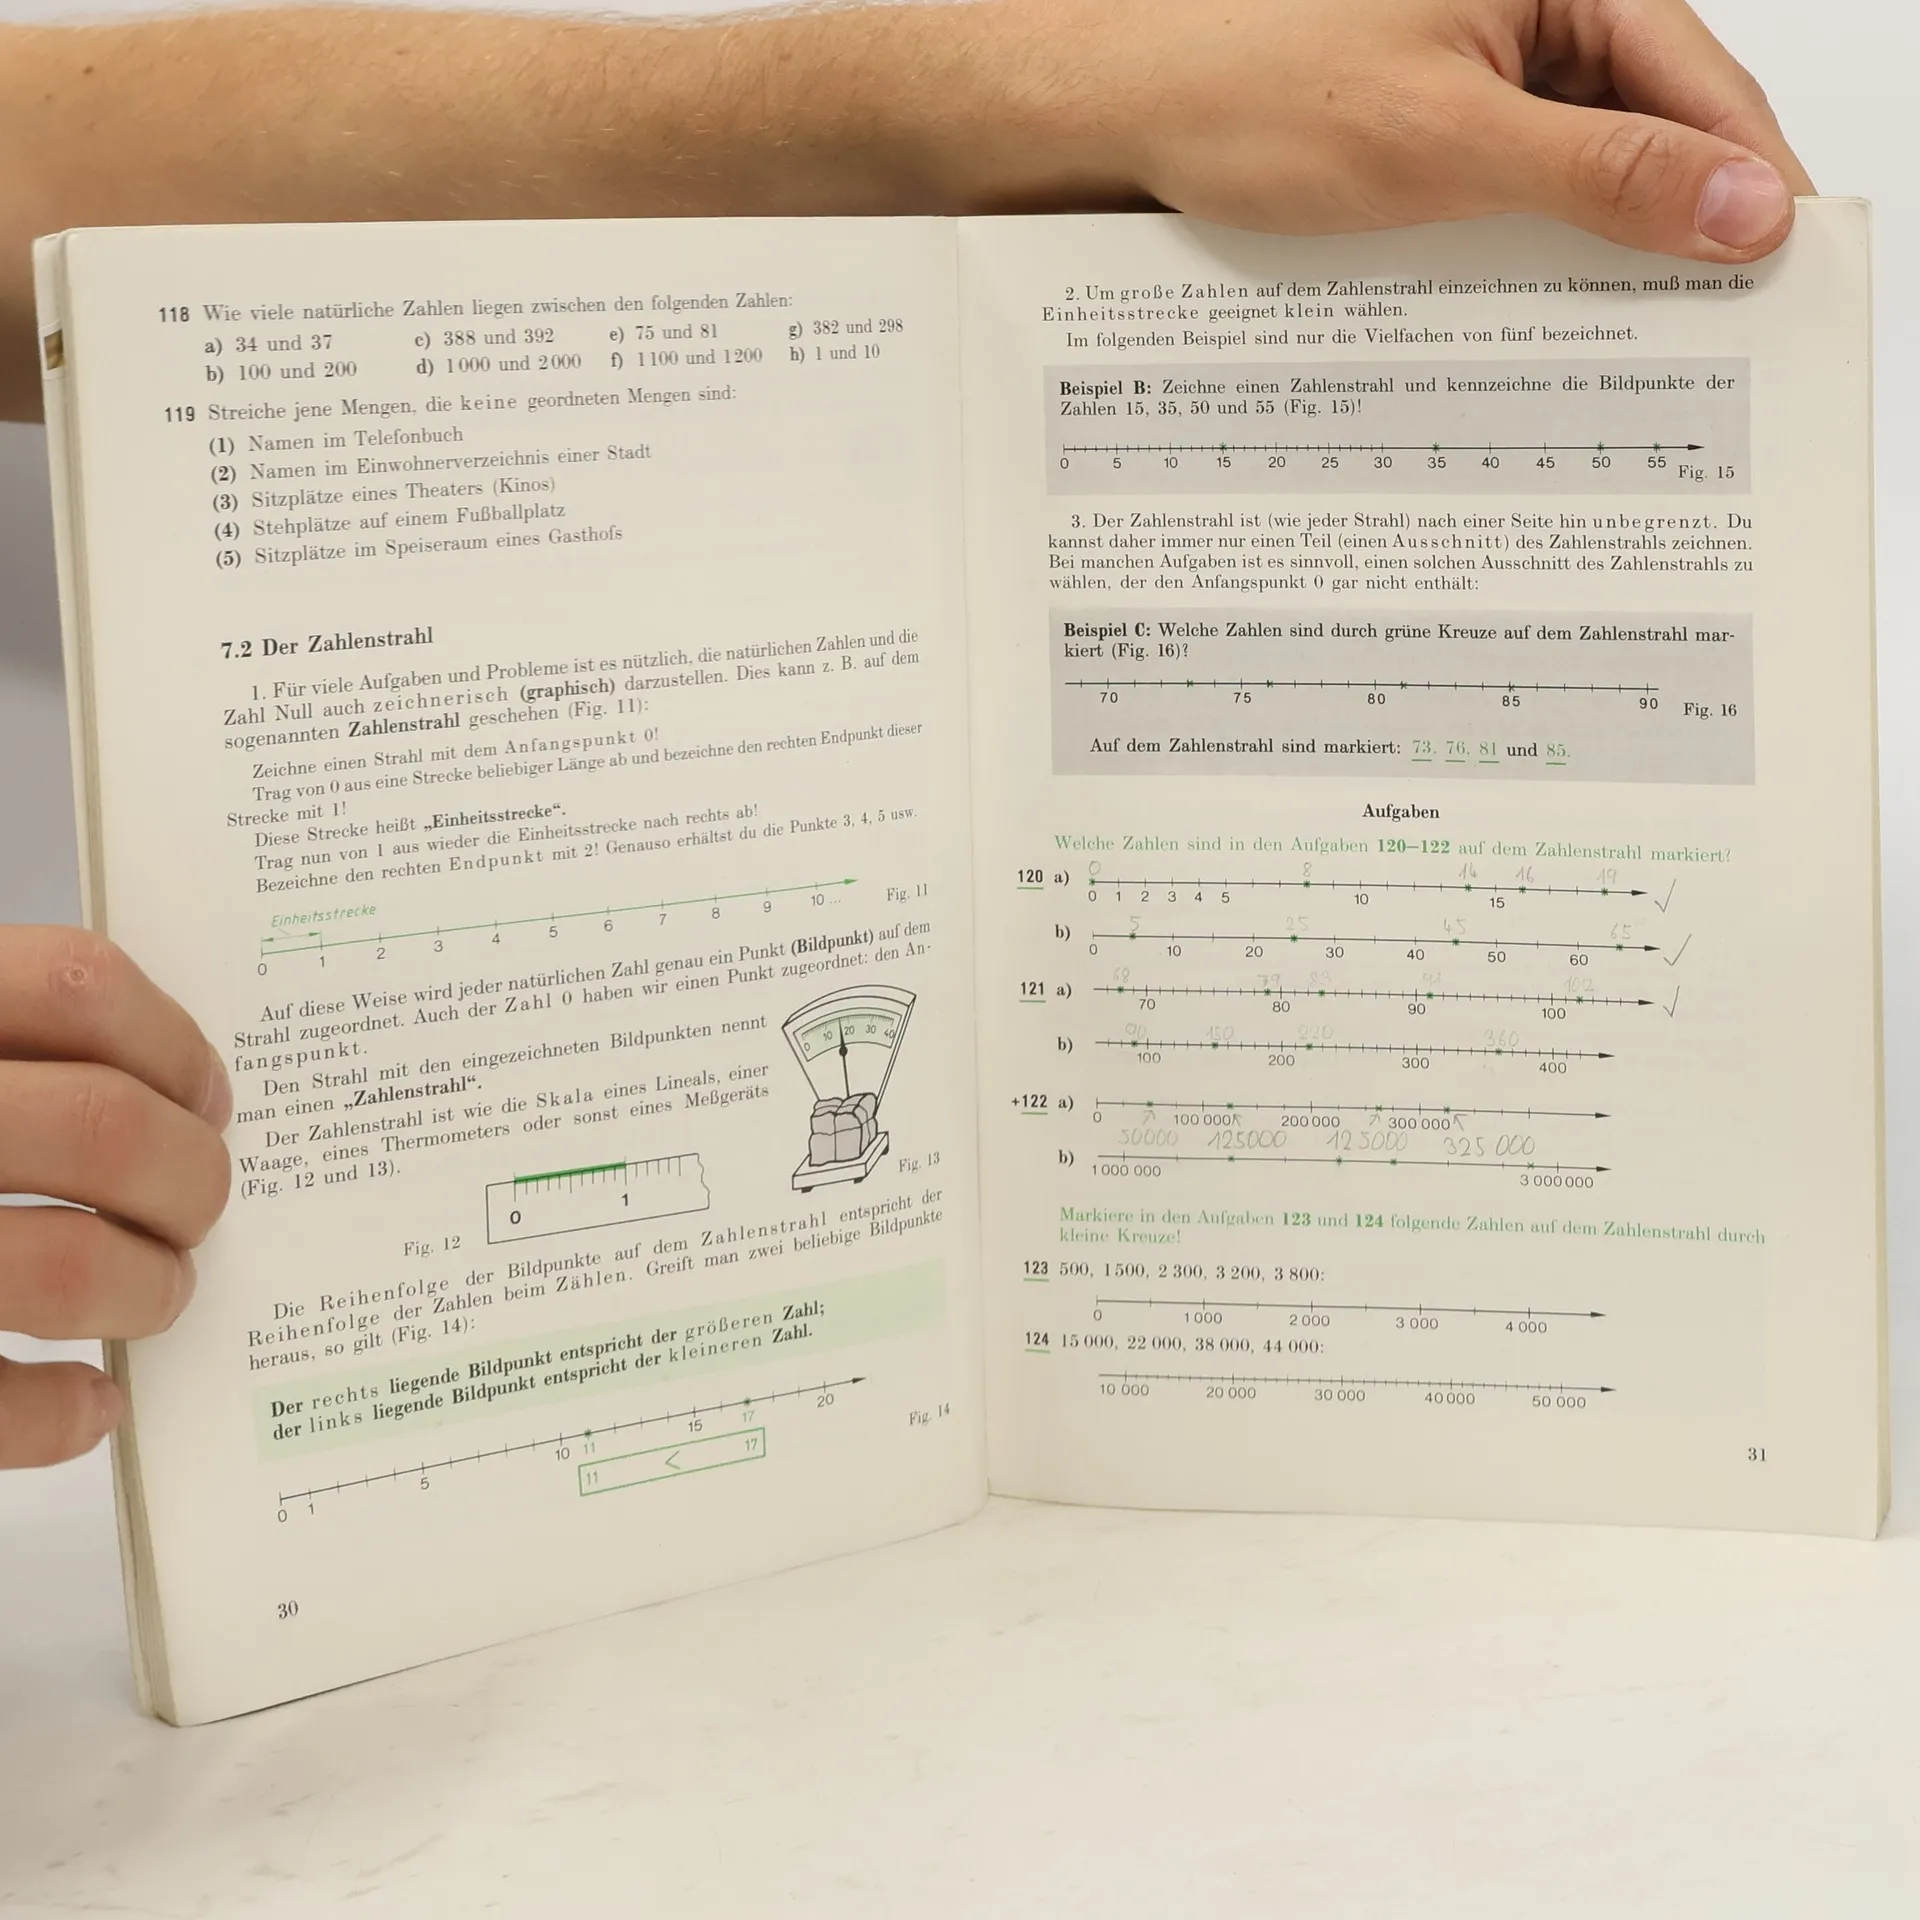 118 Wie viele natürliche Zahlen liegen zwischen den folgenden Zahlen:
a) 34 und 37 c) 388 und 392 e) 75 und 81 g) 382 und 298
b) 100 und 200 d) 1000 und 2000 f) 1100 und 1200 h) 1 und 10
119 Streiche jene Mengen, die keine geordneten Mengen sind:
(1) Namen im Telefonbuch
(2) Namen im Einwohnerverzeichnis einer Stadt
(3) Sitzplätze eines Theaters (Kinos)
(4) Stehplätze auf einem Fußballplatz
(5) Sitzplätze im Speiseraum eines Gasthofs
7.2 Der Zahlenstrahl
1. Für viele Aufgaben und Probleme ist es nützlich, die natürlichen Zahlen und die
Zahl Null auch zeichnerisch (graphisch) darzustellen. Dies kann z. B. auf dem
sogenannten Zahlenstrahl geschehen (Fig. 11):
Zeichne einen Strahl mit dem Anfangspunkt 0!
Trag von 0 aus eine Strecke beliebiger Länge ab und bezeichne den rechten Endpunkt dieser
Strecke mit 1!
Diese Strecke heißt „Einheitsstrecke“.
Trag nun von 1 aus wieder die Einheitsstrecke nach rechts ab!
Bezeichne den rechten Endpunkt mit 2! Genauso erhältst du die Punkte 3, 4, 5 usw.
Einheitsstrecke
0 1 2 3 4 5 6 7 8 9 10 ... Fig. 11
Auf diese Weise wird jeder natürlichen Zahl genau ein Punkt (Bildpunkt) auf dem
Strahl zugeordnet. Auch der Zahl 0 haben wir einen Punkt zugeordnet: den An-
fangspunkt.
Den Strahl mit den eingezeichneten Bildpunkten nennt
man einen „Zahlenstrahl“.
Der Zahlenstrahl ist wie die Skala eines Lineals, einer
Waage, eines Thermometers oder sonst eines Meßgeräts
(Fig. 12 und 13).
0 10 20 30 40
Fig. 13
0 1
Fig. 12
Die Reihenfolge der Bildpunkte auf dem Zahlenstrahl entspricht der
Reihenfolge der Zahlen beim Zählen. Greift man zwei beliebige Bildpunkte
heraus, so gilt (Fig. 14):
Der rechts liegende Bildpunkt entspricht der größeren Zahl;
der links liegende Bildpunkt entspricht der kleineren Zahl.
0 1 5 10 11 15 17 20 Fig. 14
11 < 17
30
2. Um große Zahlen auf dem Zahlenstrahl einzeichnen zu können, muß man die
Einheitsstrecke geeignet klein wählen.
Im folgenden Beispiel sind nur die Vielfachen von fünf bezeichnet.
Beispiel B: Zeichne einen Zahlenstrahl und kennzeichne die Bildpunkte der
Zahlen 15, 35, 50 und 55 (Fig. 15)!
0 5 10 15 20 25 30 35 40 45 50 55 Fig. 15
3. Der Zahlenstrahl ist (wie jeder Strahl) nach einer Seite hin unbegrenzt. Du
kannst daher immer nur einen Teil (einen Ausschnitt) des Zahlenstrahls zeichnen.
Bei manchen Aufgaben ist es sinnvoll, einen solchen Ausschnitt des Zahlenstrahls zu
wählen, der den Anfangspunkt 0 gar nicht enthält:
Beispiel C: Welche Zahlen sind durch grüne Kreuze auf dem Zahlenstrahl mar-
kiert (Fig. 16)?
70 75 80 85 90 Fig. 16
Auf dem Zahlenstrahl sind markiert: 73, 76, 81 und 85.
Aufgaben
Welche Zahlen sind in den Aufgaben 120–122 auf dem Zahlenstrahl markiert?
0 8 14 16 19
120 a) 0 1 2 3 4 5 10 15
5 25 45 65
b) 0 10 20 30 40 50 60
68 79 83 91 102
121 a) 70 80 90 100
90 150 220 360
b) 100 200 300 400
+122 a) 0 100 000 200 000 300 000
50000 125000 125000 325 000
b) 1 000 000 3 000 000
Markiere in den Aufgaben 123 und 124 folgende Zahlen auf dem Zahlenstrahl durch
kleine Kreuze!
123 500, 1500, 2 300, 3 200, 3 800:
0 1 000 2 000 3 000 4 000
124 15 000, 22 000, 38 000, 44 000:
10 000 20 000 30 000 40 000 50 000
31